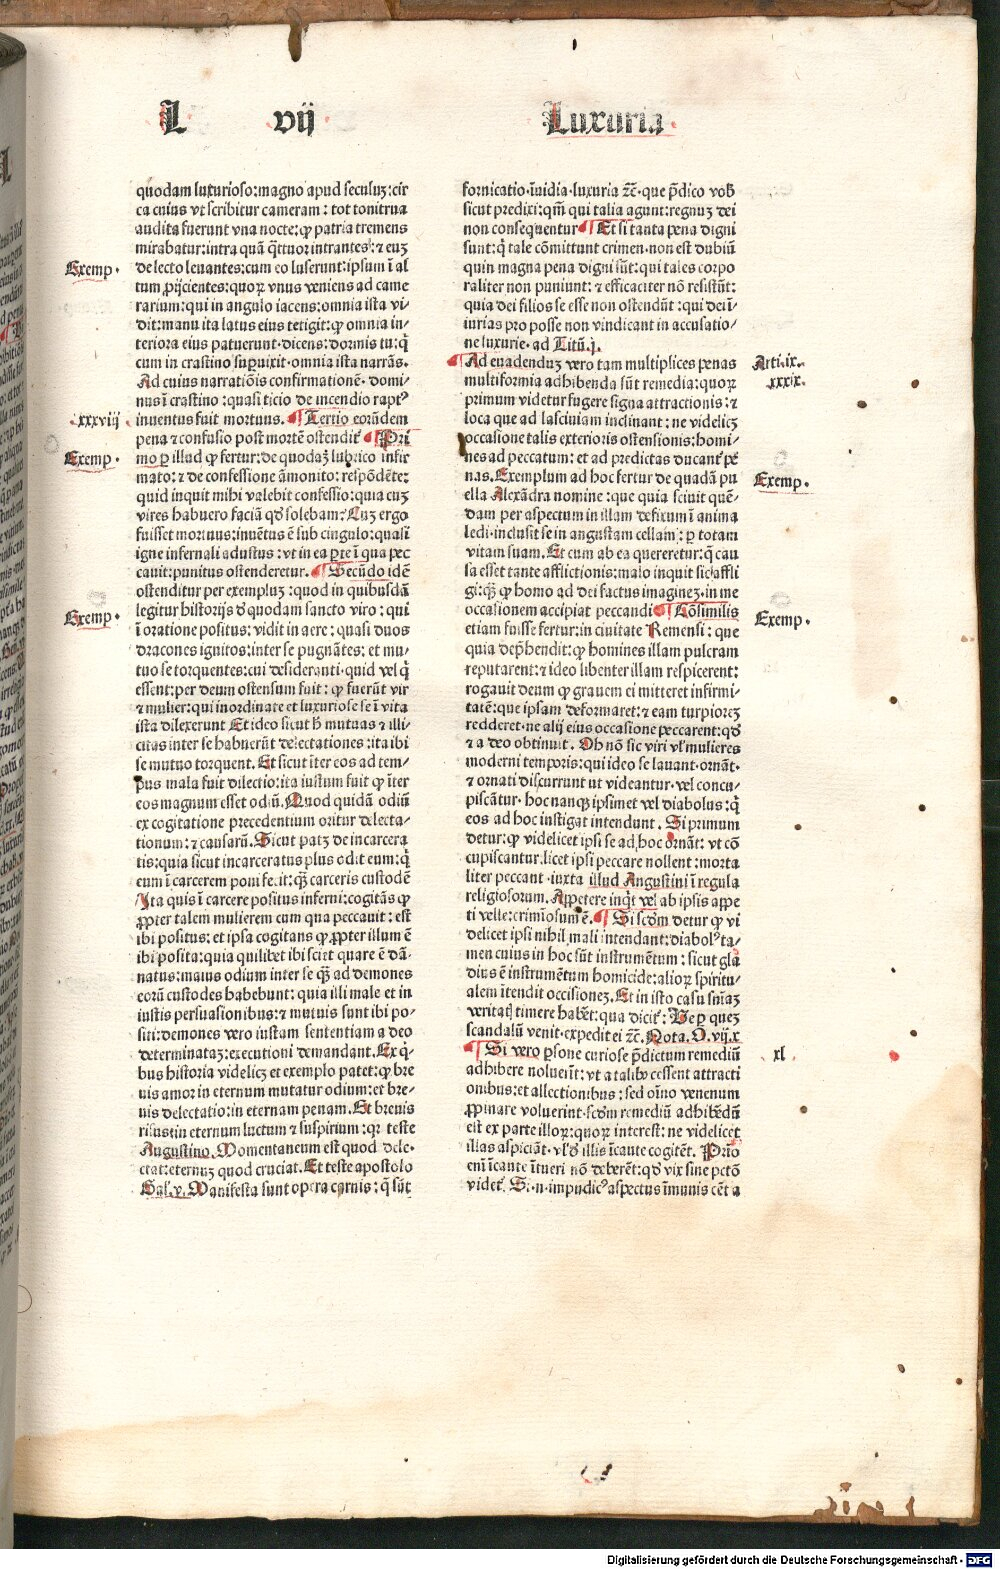 L vij Luxuria
quodam luxurioso: magno apud seculuʒ: cir
ca cuius vt scribitur cameram: tot tonitrua
audita fuerunt vna nocte: ꝙ patria tremens
mirabatur: intra quā q̄ttuor intrantes: ⁊ euʒ
Exemp.
de lecto leuantes: cum eo luserunt: ipsum ī al
tum ꝓijcientes: quoꝝ vnus veniens ad came
rarium: qui in angulo iacens: omnia ista vi⸗
dit: manu ita latus eius tetigit: ꝙ omnia in⸗
teriora eius patuerunt. dicens: dormis tu: q̄
cum in crastino suꝑuixit. omnia ista narrās.
Ad cuius narratiōis confirmationem. domi⸗
nus ī crastino: quasi ticio de incendio raptꝰ
.xxxviij.
inuentus fuit mortuus. ¶ Tertio eorūdem
pena ⁊ confusio post mortē ostendit̉ ¶ Pri
Exemp.
mo ꝑ illud ꝙ fertur: de quodaʒ lubrico infir
mato: ⁊ de confessione āmonito: respōdēte:
quid inquit mihi valebit confessio: quia cuʒ
vires habuero faciā qđ solebam: Cuʒ ergo
fuisset mortuus: inuētus ē sub cingulo: quasi
igne infernali adustus: vt in ea ꝑte ī qua pec
cauit: punitus ostenderetur. ¶ Secūdo idē
ostenditur per exempluʒ: quod in quibusdā
Exemp.
legitur historijs đ quodam sancto viro: qui
ī oratione positus: vidit in aere: quasi duos
dracones ignitos: inter se pugnātes: et mu⸗
tuo se torquentes: cui desideranti. quid vel q̄
essent: per deum ostensum fuit: ꝙ fuerūt vir
⁊ mulier: qui inordinate et luxuriose se ī vita
ista dilexerunt Et ideo sicut h̄ mutuas ⁊ illi⸗
citas inter se habuerūt delectationes: ita ibi
se mutuo torquent. Et sicut īter eos ad tem⸗
pus mala fuit dilectio: ita iustum fuit ꝙ īter
eos magnum esset odiū. Quod quidā odiū
ex cogitatione precedentium oritur delecta⸗
tionum: ⁊ causarū. Sicut patʒ de incarcera
tis: quia sicut incarceratus plus odit eum: q̄
eum ī carcerem posuit: q̄ʒ carceris custodē
Ita quis ī carcere positus inferni: cogitās ꝙ
ꝓpter talem mulierem cum qua peccauit: est
ibi positus: et ipsa cogitans ꝙ ꝓpter illum ē
ibi posita: quia quilibet ibi sciet quare ē dā⸗
natus: maius odium inter se q̄ʒ ad demones
eorū custodes habebunt: quia illi male et in
iustis persuasionibus: ⁊ mutuis sunt ibi po⸗
siti: demones vero iustam sententiam a deo
determinataʒ: executioni demandant. Ex q̄⸗
bus historia videlicʒ et exemplo patet: ꝙ bre
uis amor in eternum mutatur odium: et bre⸗
uis delectatio: in eternam penam. Et breuis
risus in eternum luctum ⁊ suspirium: qꝛ teste
Augustino. Momentaneum est quod dele⸗
ctat: eternuʒ quod cruciat. Et teste apostolo
Gal. v. Manifesta sunt opera carnis: q̄ sūt
fornicatio. inuidia. luxuria ⁊c̄. que p̄dico vob̄
sicut predixi: qm̄ qui talia agunt: regnuʒ dei
non consequentur ¶ Et si tanta pena digni
sunt: q̄ tale cōmittunt crimen. non est dubiū
quin magna pena digni sūt: qui tales corpo
raliter non puniunt: ⁊ efficaciter nō resistūt:
quia dei filios se esse non ostendūt: qui dei ī⸗
iurias pro posse non vindicant in accusatio⸗
ne luxurie. ad Titū. j.
Arti. ix.
¶ Ad euadenduʒ vero tam multiplices penas
xxxix.
multiformia adhibenda sūt remedia: quoꝝ
primum videtur fugere signa attractionis: ⁊
loca que ad lasciuiam inclinant: ne videlicʒ
occasione talis exterioris ostensionis: homi⸗
nes ad peccatum: et ad predictas ducant̉ pe⸗
Exemp.
nas. Exemplum ad hoc fertur de quadā pu
ella Alexādra nomine: que quia sciuit quē⸗
dam per aspectum in illam defixum ī anima
ledi: inclusit se in angustam cellam: ꝑ totam
vitam suam. Et cum ab ea quereretur: q̄ cau
sa esset tante afflictionis: malo inquit sic affli
gi: q̄ʒ ꝙ homo ad dei factus imagineʒ. in me
occasionem accipiat peccandi ¶ Cōsimilis
Exemp.
etiam fuisse fertur: in ciuitate Remensi: que
quia dep̄hendit: ꝙ homines illam pulcram
reputarent: ⁊ ideo libenter illam respicerent:
rogauit deum ꝙ grauem ei mitteret infirmi⸗
tatē: que ipsam deformaret: ⁊ eam turpioreʒ
redderet. ne alij eius occasione peccarent: qđ
⁊ a deo obtinuit. Oh nō sic viri vl̉ mulieres
moderni temporis: qui ideo se lauant. ornāt.
⁊ ornati discurrunt ut videantur. vel concu⸗
piscātur. hoc nanqʒ ipsimet vel diabolus: q̄
eos ad hoc instigat intendunt. Si primum
detur: ꝙ videlicet ipsi se ad hoc ornāt: vt cō
cupiscantur. licet ipsi peccare nollent: morta
liter peccant. iuxta illud Augustini ī regula
religiosorum. Appetere inq̄t vel ab ipsis appe
ti velle: crimīosum ē. ¶ Si scđm detur ꝙ vi
delicet ipsi nihil mali intendant: diabolꝰ ta⸗
men cuius in hoc sūt instrumētum: sicut gla
dius ē instrumētum homicide: alioꝝ spiritu⸗
alem ītendit occisioneʒ. Et in isto casu sn̄iaʒ
veritatꝭ timere habēt: qua dicit̉: Ve ꝑ queʒ
scandalū venit. expedit ei ⁊c̄. Nota. O. vij. x
xl
¶ Si vero ꝑsone curiose p̄dictum remediū
adhibere noluerit: vt a talibꝰ cessent attracti
onibus: et allectionibus: sed oīno venenum
ꝓpinare voluerint. scđm remediū adhibēdū
est ex parte illoꝝ: quoꝝ interest: ne videlicet
illas aspiciāt. vl̉ đ illis īcaute cogitēt. Prīo
enī īcante ītueri nō deberēt: qđ vix sine pctō
videt̉. Si. n. impudicꝰ aspectus īmunis cēt a